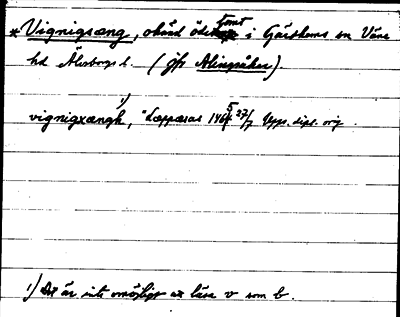 * Vignigsæng, okänd ödetomt i Gärdhems sn Väne
hd Älvsborgs l. (jfr Alingsåker).
vignigxængh 1), "Læpparas 1465 27/7 Upps. dipl. orig.
1) Det är inte omöjligt att läsa v som b.